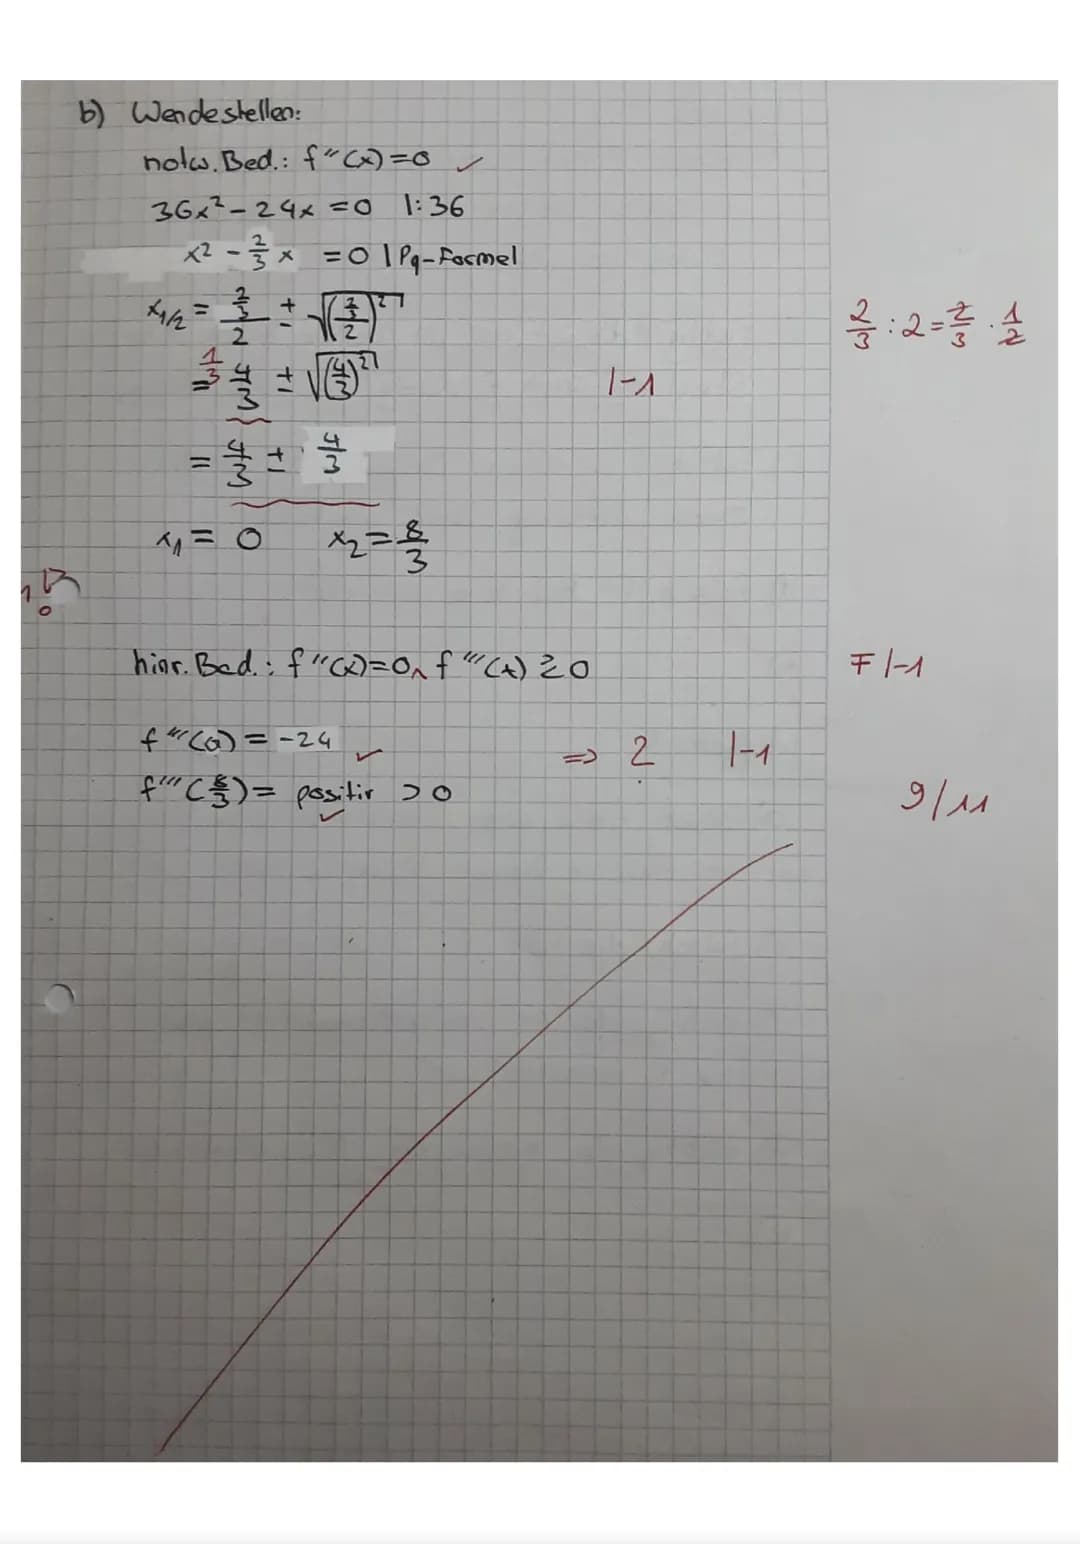 b) Wendestellen:
notw. Bed.: f''(x)=0 ✓
36x² - 24x = 0 |:36
x² - 2/3 x = 0 | Pq-Formel
x1/2 = (2/3)/2 ± √((2/3)/2)²
2/3 : 2 = 2/3 · 1/2
= 1/3 4/3 ± √(4/3)² |-1
= 4/3 ± 4/3
x1 = 0 x2 = 8/3
hinr. Bed.: f''(x)=0 ∧ f'''(x) ≷ 0 F |-1
f'''(0) = -24 ✓ => ? |-1
f'''(8/3) = positiv > 0 ✓
9/11